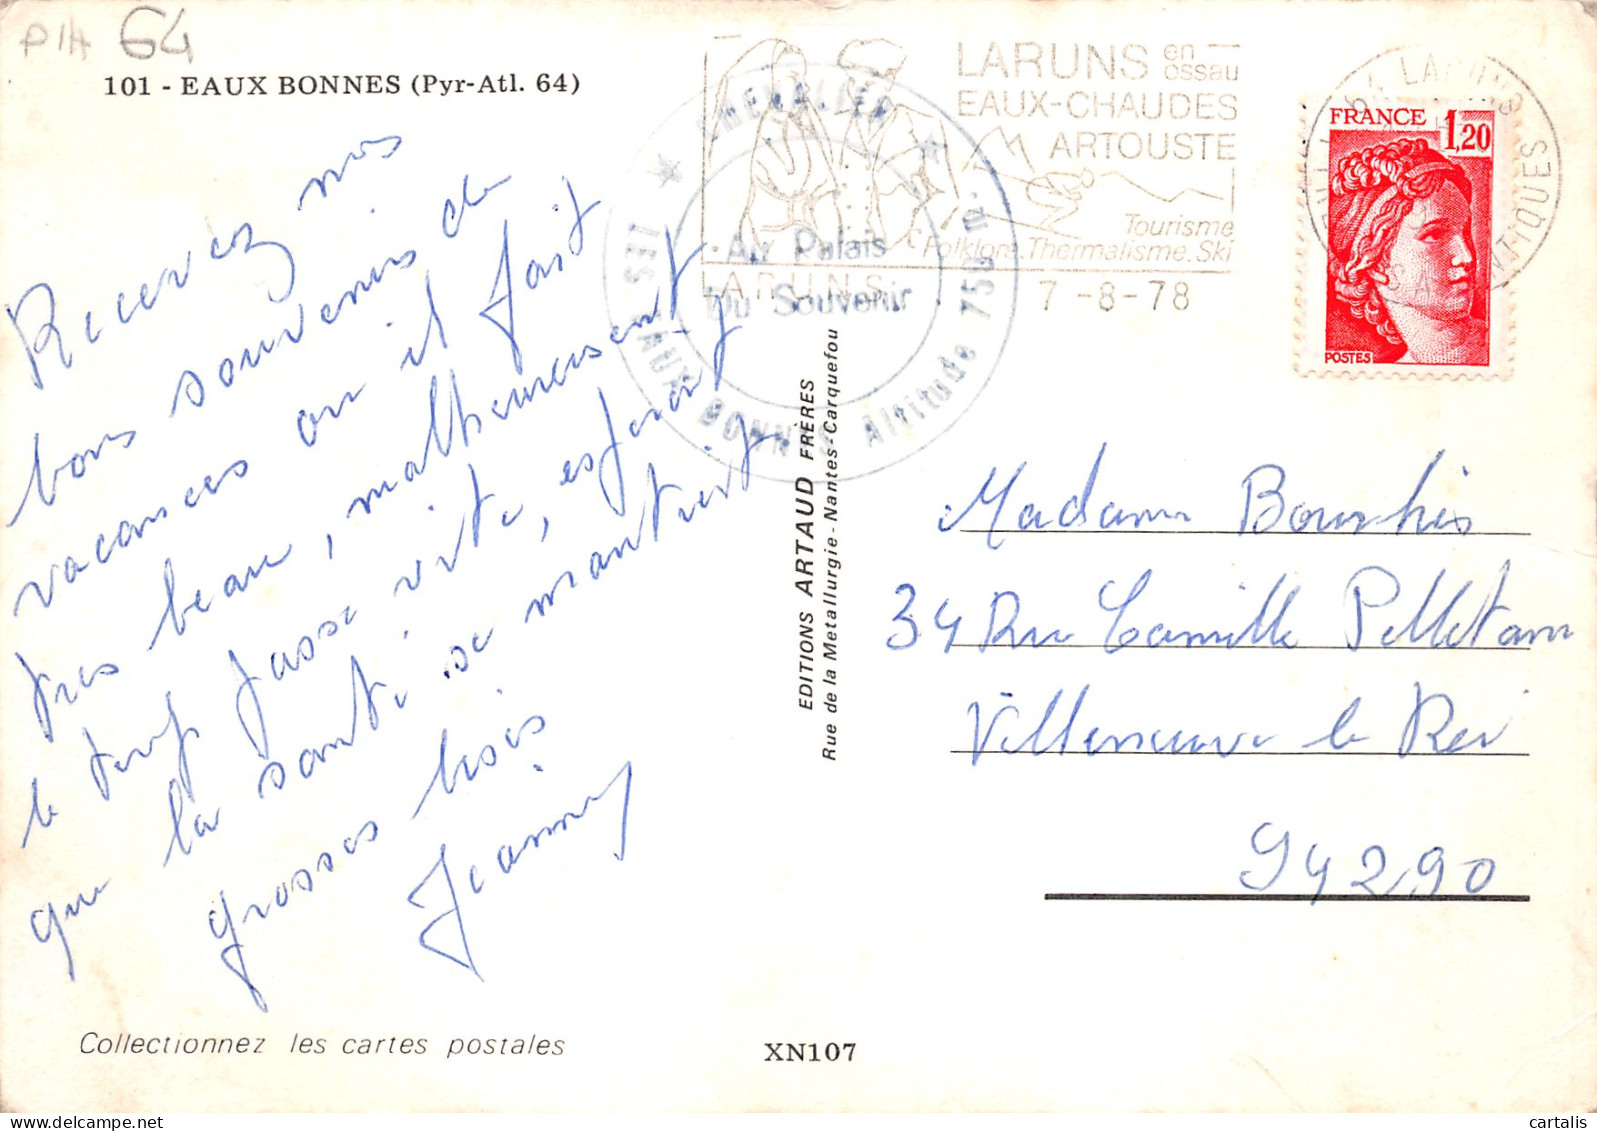 PIA 64
101 - EAUX BONNES (Pyr-Atl. 64)
Recevez nos
bons souvenirs de
vacances ou il fait
tres beau, malheureusement
le temps passe vite, esperons
que la santé se maintient
grosses bises
Jeanny
Collectionnez les cartes postales
XN107
EDITIONS ARTAUD FRÈRES
Rue de la Metallurgie - Nantes-Carquefou
CHEVALIER
Au Palais
Du Souvenir
LES EAUX BONNES Altitude 750 m.
LARUNS en ossau
EAUX-CHAUDES
ARTOUSTE
Tourisme
Folklore.Thermalisme.Ski
LARUNS
7-8-78
64 LARUNS
PYRENEES ATLANTIQUES
FRANCE 1,20
POSTES
Madame Bourhis
34 Rue Camille Pelletan
Villeneuve le Roi
94290
cartalis